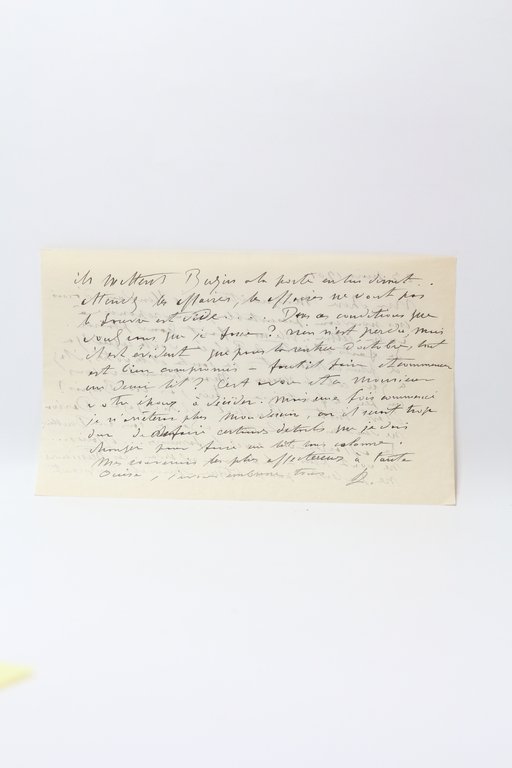 ils mettent Badjus a la porte en lui disant
attendez les affaires, les affaires ne vont pas
la bourse est vide. Dans ces conditions que
voulez vous que je fasse? rien n'est perdu mais
il est évident que pour la rentrée d'octobre, tout
est bien compromis – faut il faire et commencer
un demi lit? C'est vous et a monsieur
votre époux à décider. mais une fois commencé
je n'arrêterai plus Monsieur, car il serait trop
dur de défaire certains détails que je dois
changer pour faire un lit sans colonne.
Mes souvenirs les plus affectueux à tante
Ouise, je vous embrasse tous